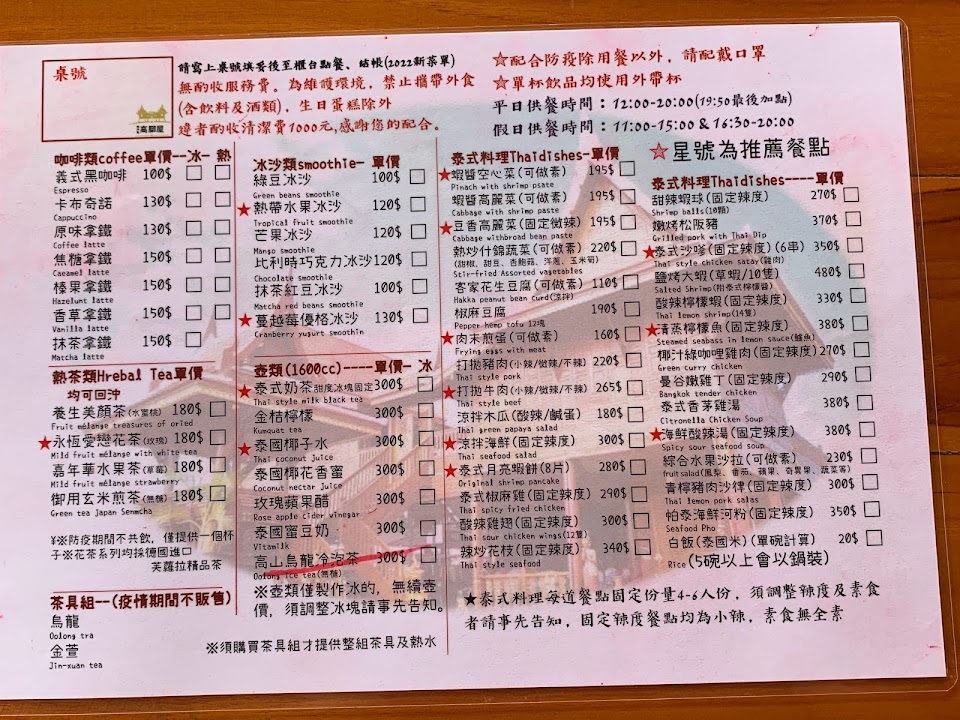 桌號
高腳屋
請寫上桌號填妥後至櫃台點餐、結帳(2022新菜單)
無酌收服務費。為維護環境,禁止攜帶外食
(含飲料及酒類),生日蛋糕除外
違者酌收清潔費1000元,感謝您的配合。
☆配合防疫除用餐以外,請配戴口罩
☆單杯飲品均使用外帶杯
平日供餐時間:12:00-20:00(19:50最後加點)
假日供餐時間:11:00-15:00 & 16:30-20:00
咖啡類coffee單價--冰- 熱
義式黑咖啡 100$
Espresso
卡布奇諾 130$
Cappuccino
原味拿鐵 130$
Coffee latte
焦糖拿鐵 150$
Caeamel latte
榛果拿鐵 150$
Hazelunt latte
香草拿鐵 150$
Vanilla latte
抹茶拿鐵 150$
Matcha latte
熱茶類Hrebal Tea單價
均可回沖
養生美顏茶(水蜜桃) 180$
Fruit mélange treasures of oried
★永恆愛戀花茶(玫瑰) 180$
Mild fruit mélange with white tea
嘉年華水果茶(草莓) 180$
Mild fruit mélange strawberry
御用玄米煎茶(無糖) 180$
Green tea Japan Senmcha
¥※防疫期間不共飲,僅提供一個杯
子※花茶系列均採德國進口
芙蘿拉精品茶
茶具組--(疫情期間不販售)
烏龍
Oolong tra
金萱
Jin-xuan tea
冰沙類smoothie- 單價
綠豆冰沙 100$
Green beans smoothie
★熱帶水果冰沙 120$
Tropical fruit smoothie
芒果冰沙 120$
Mango smoothie
比利時巧克力冰沙120$
Chocolate smoothie
抹茶紅豆冰沙 100$
Matcha red beans smoothie
★蔓越莓優格冰沙 130$
Cranberry yogurt smoothin
壺類(1600cc)-----單價- 冰
★泰式奶茶甜度冰塊固定300$
Thai style milk black tea
金桔檸檬 300$
Kumquat tea
★泰國椰子水 300$
Thai coconut juice
泰國椰花香蜜 300$
Coconut nectar juice
玫瑰蘋果醋 300$
Rose apple cider vinegar
泰國蜜豆奶 300$
Vitamilk
高山烏龍冷泡茶 300$
Oolong ice tea(無糖)
※壺類僅製作冰的,無續壺
價,須調整冰塊請事先告知。
※須購買茶具組才提供整組茶具及熱水
泰式料理Thaidishes-單價
★蝦醬空心菜(可做素) 195$
Pinach with shrimp psate
蝦醬高麗菜(可做素) 195$
Cabbage with shrimp paste
★豆香高麗菜(固定微辣) 195$
Cabbage withbroad bean paste
熱炒什錦蔬菜(可做素) 220$
(甜椒、甜豆、杏鮑菇、洋蔥、玉米筍)
Stir-fried Assorted vagetables
客家花生豆腐(可做素) 110$
Hakka peanut bean curd(涼拌)
椒麻豆腐 190$
Pepper hemp tofu 12塊
★肉末煎蛋(可做素) 160$
Frying eggs with meat
打拋豬肉(小辣/微辣/不辣) 220$
Thai style pork
★打拋牛肉(小辣/微辣/不辣) 265$
Thai style beef
涼拌木瓜(酸辣/鹹蛋) 180$
Thai green papaya salad
★涼拌海鮮(固定辣度) 300$
Thai seafood salad
★泰式月亮蝦餅(8片) 280$
Original shrimp pancake
泰式椒麻雞(固定辣度) 290$
Thai spicy fried chicken
酸辣雞翅(固定辣度) 300$
Thai sour chicken wings(12隻)
辣炒花枝(固定辣度) 340$
Thai style seafood
☆星號為推薦餐點
泰式料理Thaidishes----單價
甜辣蝦球(固定辣度) 270$
Shrimp balls(10顆)
嫩烤松阪豬 370$
Grilled pork with Thai Dip
★泰式沙嗲(固定辣度)(6串) 350$
Thai style chicken satay(雞肉)
鹽烤大蝦(草蝦/10隻) 480$
Salted Shrimp(附泰式檸檬醬)
酸辣檸檬蝦(固定辣度) 330$
Thai lemon shrimp(14隻)
★清蒸檸檬魚(固定辣度) 380$
Steamed seabass in lemon sauce(鱸魚)
椰汁綠咖哩雞肉(固定辣度)270$
Green curry chicken
曼谷嫩雞丁(固定辣度) 290$
Bangkok tender chicken
泰式香茅雞湯 380$
Citronella Chicken Soup
★海鮮酸辣湯(固定辣度) 380$
Spicy sour seafood soup
綜合水果沙拉(可做素) 230$
fruit salad(鳳梨、番茄、蘋果、奇異果、蔬菜等)
青檸豬肉沙律(固定辣度) 300$
Thai lemon pork salas
帕泰海鮮河粉(固定辣度) 350$
Seafood Pho
白飯(泰國米)(單碗計算) 20$
Rice(5碗以上會以鍋裝)
★泰式料理每道餐點固定份量4-6人份,須調整辣度及素食
者請事先告知,固定辣度餐點均為小辣,素食無全素